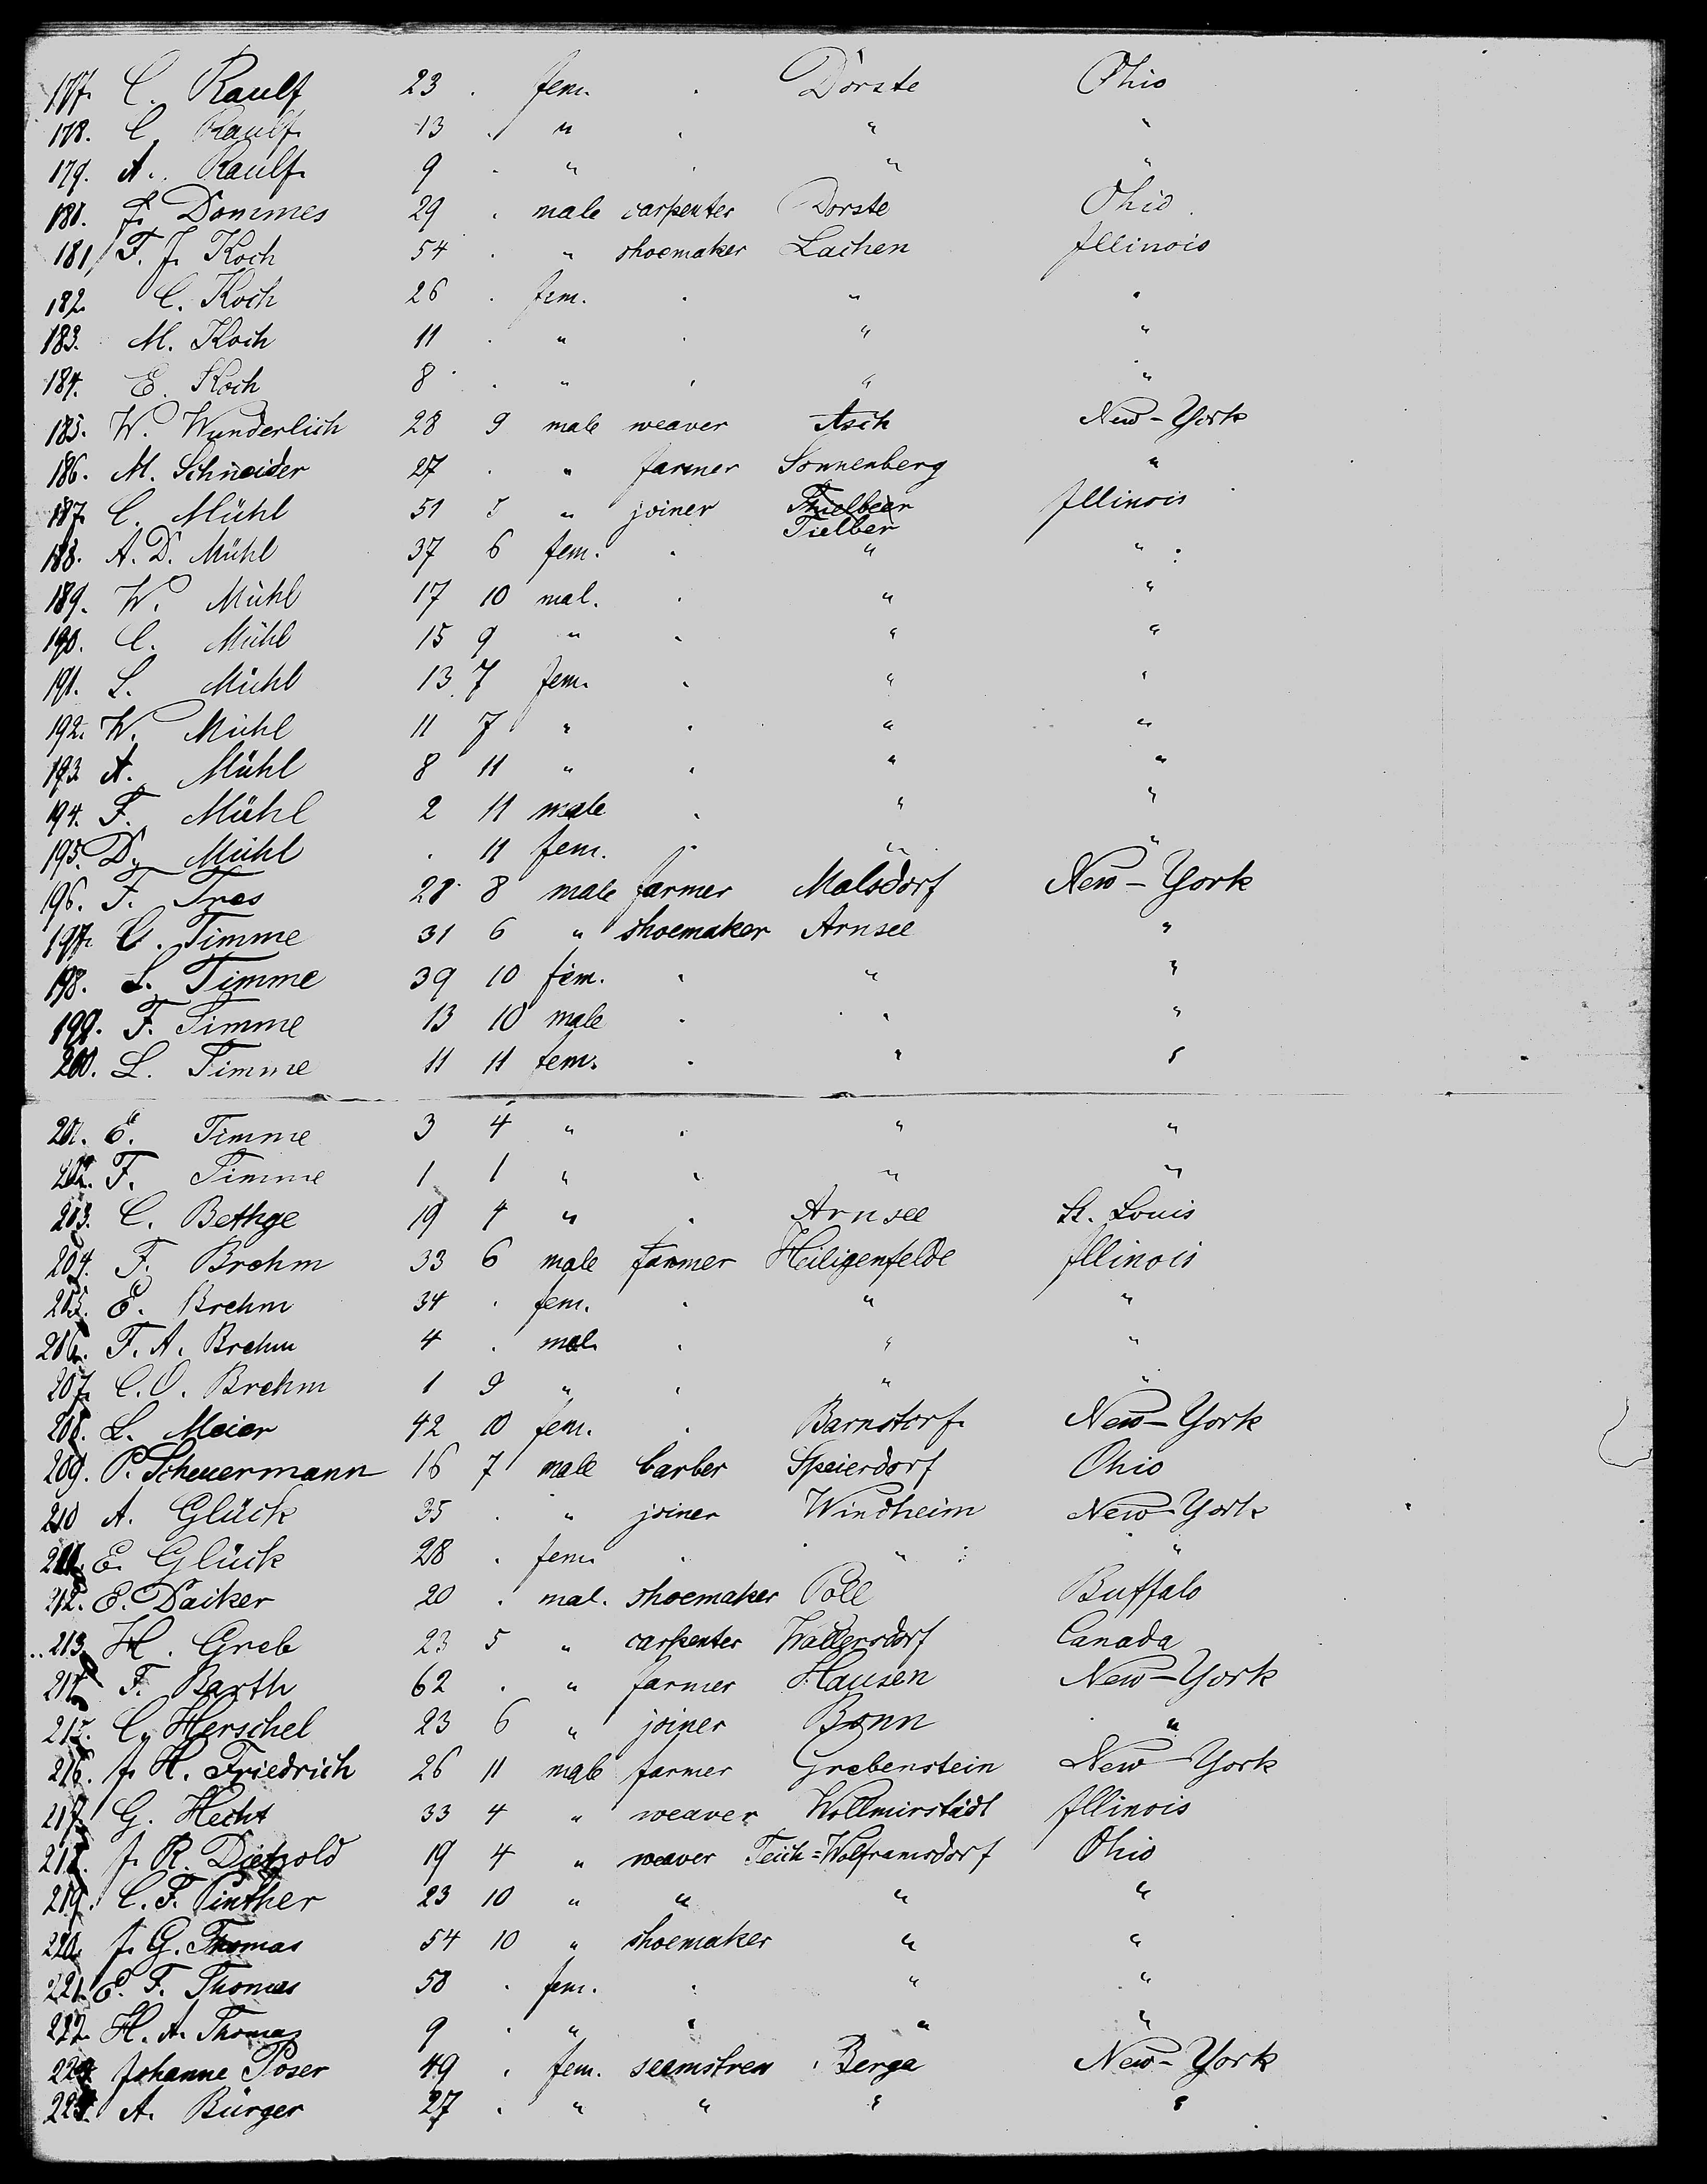 177. C. Raulf 23 . fem. . Dorste Ohio
178. C. Raulf. 13 . " . " "
179. A. Raulf. 9 . " . " "
180. F. Dommes 29 . male carpenter Dorste Ohio.
181. F. J. Koch 54 . " shoemaker Lachen Illinois
182. C. Koch 26 . fem. . " "
183. M. Koch 11 . " . " "
184. E. Koch 8 . " . " "
185. W. Wunderlich 28 9 male weaver Asch New-York
186. M. Schneider 27 . " farmer Sonnenberg "
187. C. Mühl 51 5 " joiner Thielbeer Illinois
Tielber
188. A. D. Mühl 37 6 fem. . " "
189. W. Mühl 17 10 mal. . " "
190. C. Mühl 15 9 " . " "
191. L. Mühl 13 7 fem. . " "
192. W. Mühl 11 7 " . " "
193. A. Mühl 8 11 " . " "
194. F. Mühl 2 11 male . " "
195. D. Mühl . 11 fem. . " "
196. F. Tres 28 8 male farmer Malsdorf New-York
197. C. Timme 31 6 " shoemaker Arnsee "
198. L. Timme 39 10 fem. . " "
199. F. Timme 13 10 male . " "
200. L. Timme 11 11 fem. . " "
201. E. Timme 3 4 " . " "
202. F. Timme 1 1 " . " "
203. C. Bethge 19 4 " . Arnsee St. Louis
204. F. Brehm 33 6 male farmer Heiligenfelde Illinois
205. E. Brehm 34 . fem. . " "
206. F. A. Brehm 4 . mal. . " "
207. C. O. Brehm 1 9 " . " "
208. L. Meier 42 10 fem. . Barnstorf. New-York
209. P. Scheuermann 16 7 male barber Speierdorf Ohio
210 A. Glück 35 . " joiner Windheim New-York
211. E. Glück 28 . fem. . " "
212. E. Daiker 20 . mal. shoemaker Poll Buffalo
213. H. Greb 23 5 " carpenter Wallersdorf Canada
214. F. Barth 62 . " farmer Hausen New-York
215. C. Herschel 23 6 " joiner Bonn "
216. J. H. Friedrich 26 11 male farmer Grebenstein New-York
217. G. Hecht 33 4 " weaver Wollmirstädt Illinois
218. J. R. Dietzold 19 4 " weaver Teich=Wolframsdorf Ohio
219. C. F. Pinther 23 10 " " " "
220. J. G. Thomas 54 10 " shoemaker " "
221. E. F. Thomas 50 . fem. . " "
222. H. A. Thomas 9 . " " " "
223. Johanne Poser 49 . fem. seamstress Berga New-York
224. A. Bürger 27 . " " " "